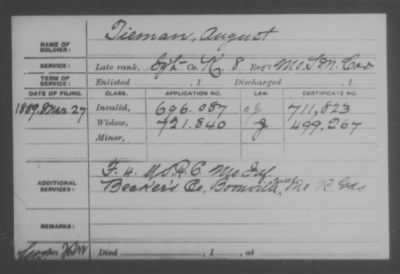 NAME OF SOLDIER: Tieman, August
SERVICE: Late rank, Cpl Co. K, 8 Reg't Mo. S. M. Cav
TERM OF SERVICE: Enlisted , 1 Discharged , 1
DATE OF FILING. CLASS. APPLICATION NO. LAW. CERTIFICATE NO.
1889. Mar 27 Invalid, 696.087 711,823
Widow, 721.840 G 499,267
Minor,
ADDITIONAL SERVICES: F. 4. U.S. R. C. Mo Inf.
Becker's Co. Boonville, Mo
REMARKS:
Died , 1 , at